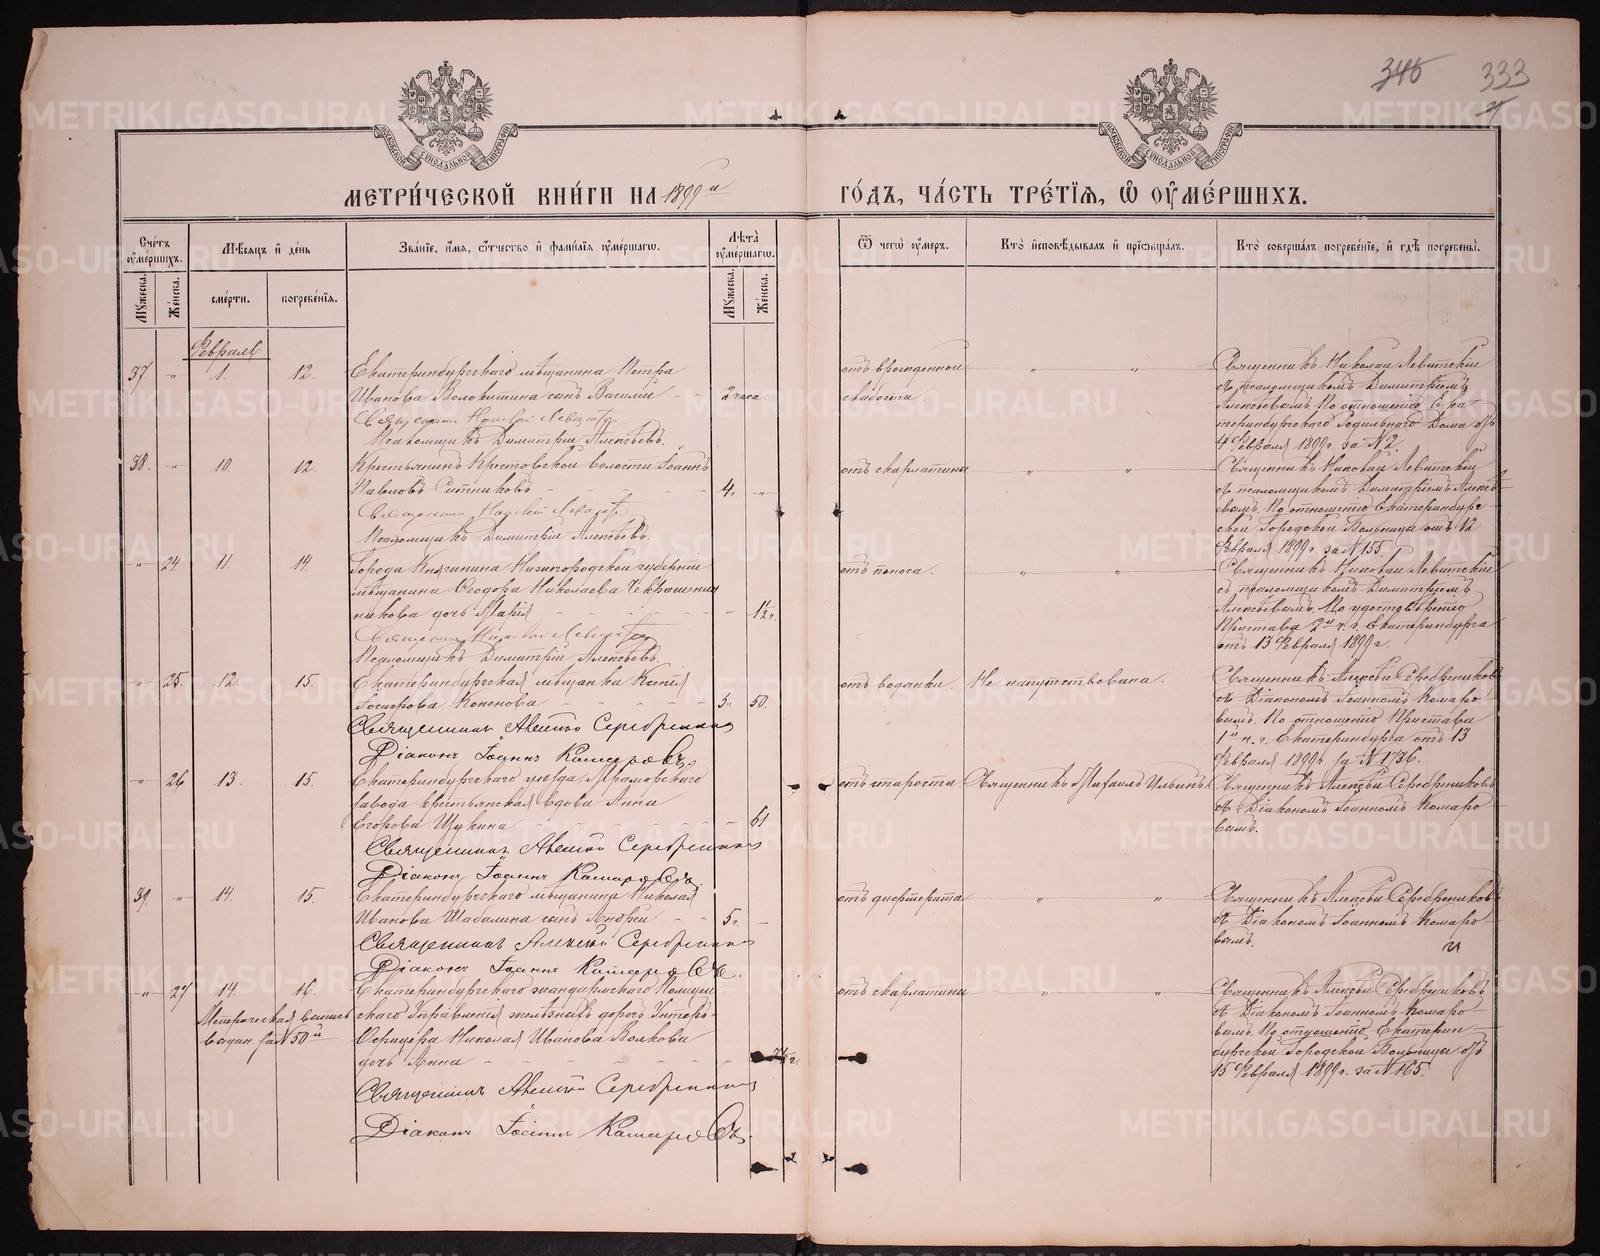 346 333
МЕТРИ́ЧЕСКОЙ КНИ́ГИ НА 1899й ГО́ДЪ, ЧА́СТЬ ТРЕ́ТІѦ, Ѡ҆ ОУ҆МЕ́РШИХЪ.
Сче́тъ оу҆ме́ршихъ.
Мꙋ́жеска.
Же́нска.
Мѣ́сѧцъ и҆ де́нь
сме́рти.
погребе́нїѧ.
Зва́нїе, и҆́мѧ, ѻ҆́тчество и҆ фами́лїѧ оу҆ме́ршагѡ.
Лѣ́та оу҆ме́ршагѡ.
Мꙋ́жеска.
Же́нска.
Ѿ чегѡ̀ оу҆́меръ.
Кто̀ и҆сповѣ́дывалъ и҆ прїѡбща́лъ.
Кто̀ соверша́лъ погребе́нїе, и҆ гдѣ̀ погребены̀.
Февраль
37 " 1. 12. Екатеринбургскаго мѣщанина Петра
Иванова Воловитина сынъ Василій 2 часа.
Священникъ Николай Левитскій
Псаломщикъ Димитрій Алексѣевъ.
отъ врожденной
слабости
" "
Священникъ Николай Левитскій
съ псаломщикомъ Димитріемъ
Алексѣевымъ. По отношенію Ека
теринбургскаго Родильнаго Дома отъ
4 Февраля 1899г. за №2.
38. " 10. 12. Крестьянинъ Крестовской волости Іоаннъ
Павловъ Ситниковъ 4. "
Священникъ Николай Левитскій
Псаломщикъ Димитрій Алексѣевъ.
отъ скарлатины
" "
Священникъ Николай Левитскій
съ псаломщикомъ Димитріемъ Алексѣ-
евымъ. По отношенію Екатеринбург
ской Городской Больницы отъ 12
Февраля 1899г. за №155.
" 24 11. 14. Города Княгинина Нижегородской губерніи
мѣщанина Ѳеодора Николаева
никова дочь Марія
Священникъ Николай Левитскій
Псаломщикъ Димитрій Алексѣевъ.
отъ поноса.
" "
Священникъ Николай Левитскій
съ псаломщикомъ Димитріемъ
Алексѣевымъ. По удостовѣренію
Пристава 2й ч. г. Екатеринбурга
отъ 13 Февраля 1899г.
" 25 12. 15. Екатеринбургская мѣщанка Ксенія
Кононова 50.
Священникъ Алексѣй Серебренниковъ
Діаконъ Іоаннъ Комаровъ.
отъ водянки. Не напутствована.
Священникъ Алексѣй Серебренниковъ
съ Діакономъ Іоанномъ Комаро
вымъ. По отношенію Пристава
1й ч. г. Екатеринбурга отъ 13
Февраля 1899г. за №1736.
" 26 13. 15. Екатеринбургскаго уѣзда Мраморскаго
завода крестьянская вдова Анна
Егорова Щукина 61
Священникъ Алексѣй Серебренниковъ
Діаконъ Іоаннъ Комаровъ.
отъ старости Священникъ Михаилъ Ильинъ.
Священникъ Алексѣй Серебренниковъ
съ Діакономъ Іоанномъ Комаро
вымъ.
39. " 14. 15. Екатеринбургскаго мѣщанина Николая
Иванова Шабалина сынъ Андрей 5г.
Священникъ Алексѣй Серебренниковъ
Діаконъ Іоаннъ Комаровъ.
отъ дифтерита
" "
Священникъ Алексѣй Серебренниковъ
съ Діакономъ Іоанномъ Комаро
вымъ.
" 27 14. 16. Екатеринбургскаго жандармскаго Полицей
скаго Управленія желѣзныхъ дорогъ Унтеръ-
Офицера Николая Иванова Волкова
дочь Анна
Метрическая выпись
выдан. за №50й
Священникъ Алексѣй Серебренниковъ
Діаконъ Іоаннъ Комаровъ.
отъ скарлатины
" "
Священникъ Алексѣй Серебренниковъ
съ Діакономъ Іоанномъ Комаро-
вымъ. По отношенію Екатерин-
бургской Городской Больницы отъ
15 Февраля 1899г. за №165.